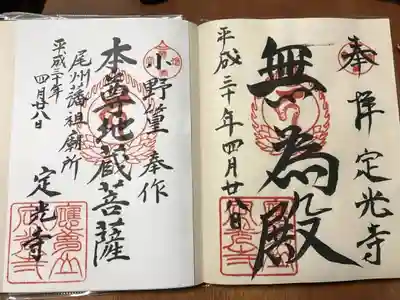 奉拝定光寺
無為殿
平成三十年四月廿八日
小野篁奉作
本尊地蔵菩薩
尾州藩祖廟所
平成三十年
四月廿八日
定光寺